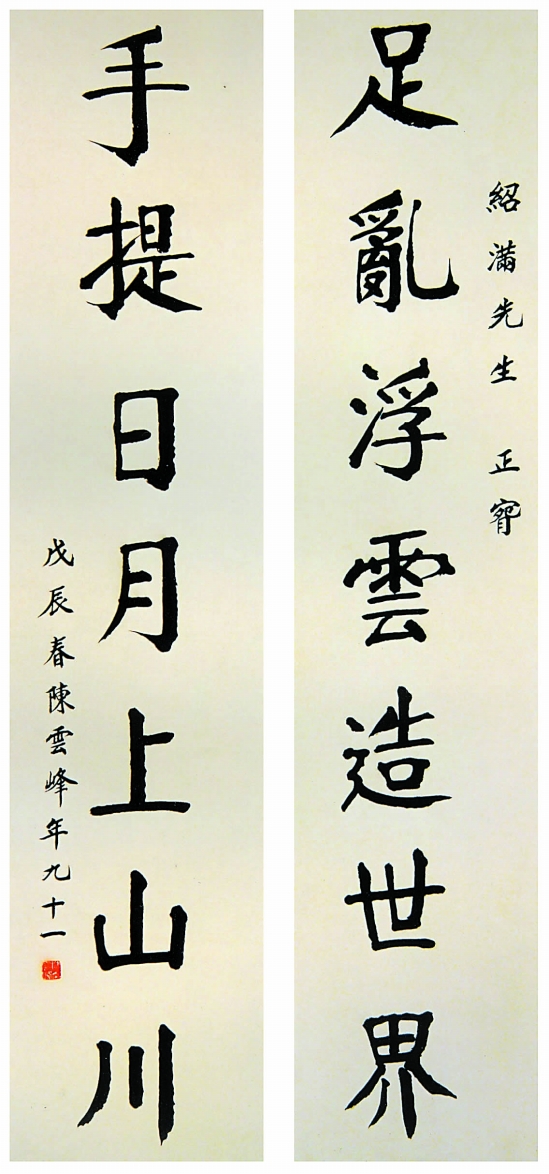 紹滿先生 正寳
足亂浮雲造世界
手提日月上山川
戊辰春陳雲峰年九十一